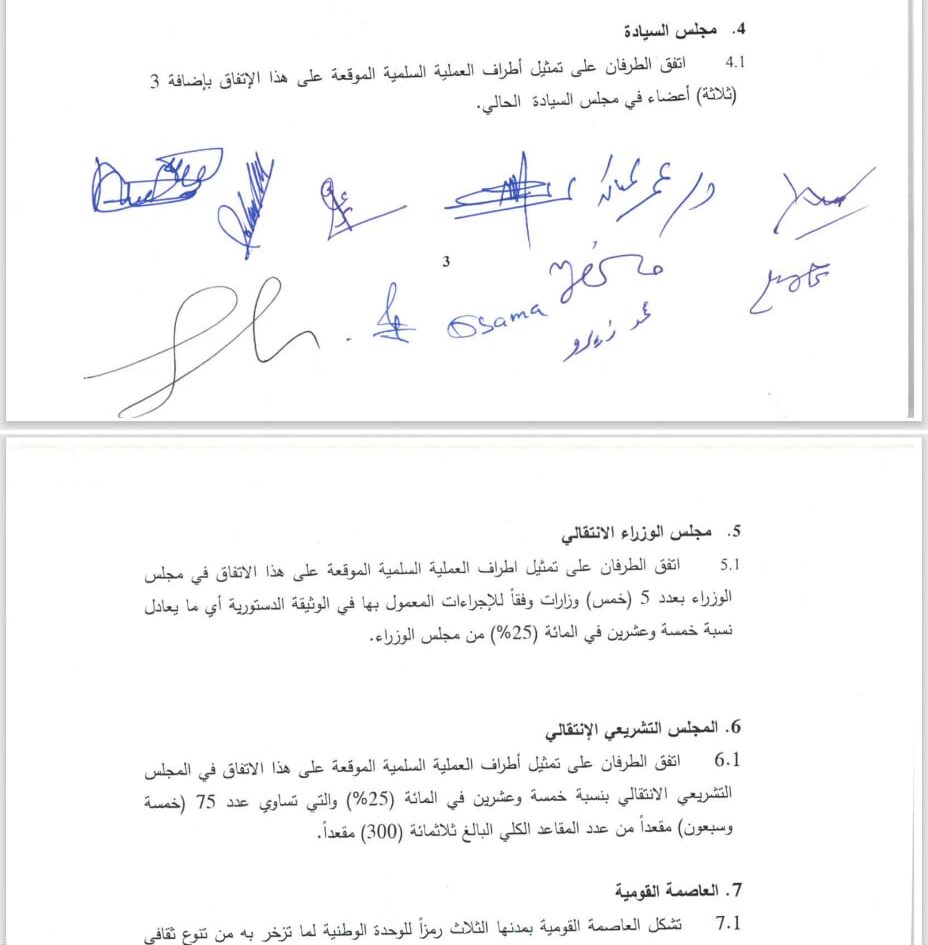 4. مجلس السيادة
4.1 اتفق الطرفان على تمثيل أطراف العملية السلمية الموقعة على هذا الإتفاق بإضافة 3
(ثلاثة) أعضاء في مجلس السيادة الحالي.
3
Osama
5. مجلس الوزراء الانتقالي
5.1 اتفق الطرفان على تمثيل اطراف العملية السلمية الموقعة على هذا الاتفاق في مجلس
الوزراء بعدد 5 (خمس) وزارات وفقاً للإجراءات المعمول بها في الوثيقة الدستورية أي ما يعادل
نسبة خمسة وعشرين في المائة (25%) من مجلس الوزراء.
6. المجلس التشريعي الإنتقالي
6.1 اتفق الطرفان على تمثيل أطراف العملية السلمية الموقعة على هذا الاتفاق في المجلس
التشريعي الانتقالي بنسبة خمسة وعشرين في المائة (25%) والتي تساوي عدد 75 (خمسة
وسبعون) مقعداً من عدد المقاعد الكلي البالغ ثلاثمائة (300) مقعداً.
7. العاصمة القومية
7.1 تشكل العاصمة القومية بمدنها الثلاث رمزاً للوحدة الوطنية لما تزخر به من تنوع ثقافي